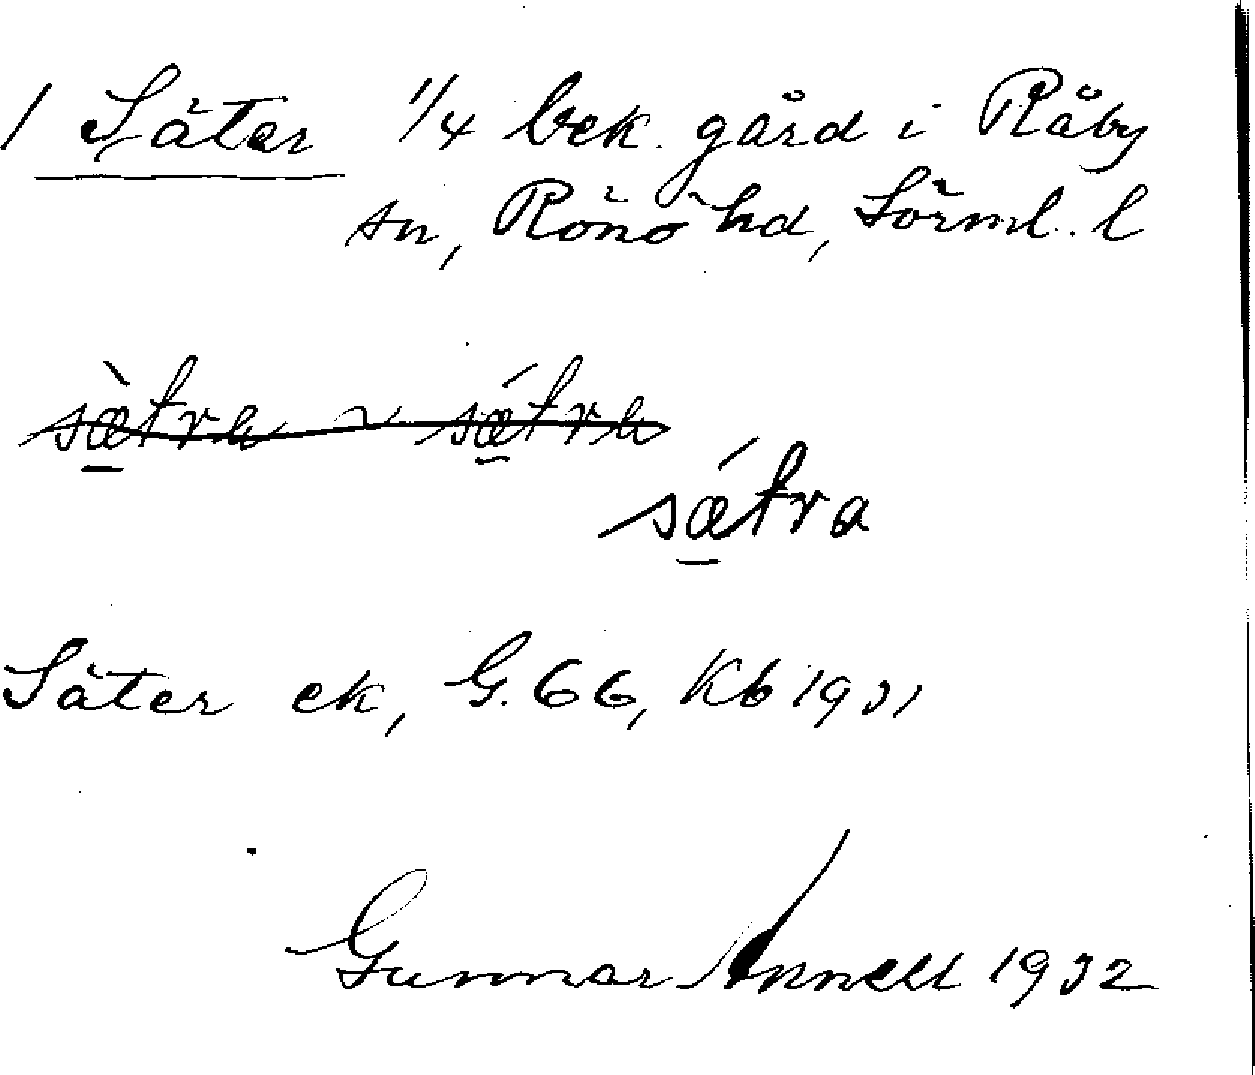 / Säter 1/4 bek. gård i Råby
sn, Rönö hd, Sörml. l
sæ̀tra ~ sǽtra
sǽtra
Säter ek, G. 66, Kb 1931
Gunnar Annell 1932